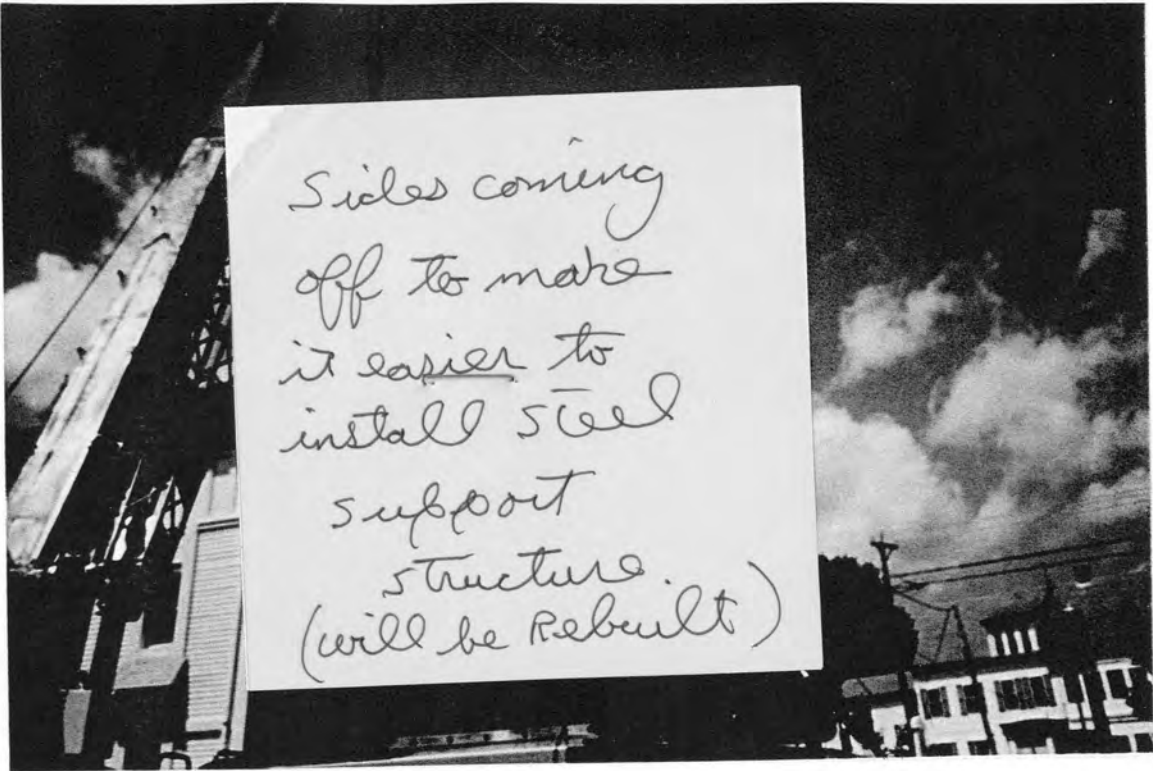 Sides coming
off to make
it easier to
install steel
support
structure.
(will be Rebuilt)